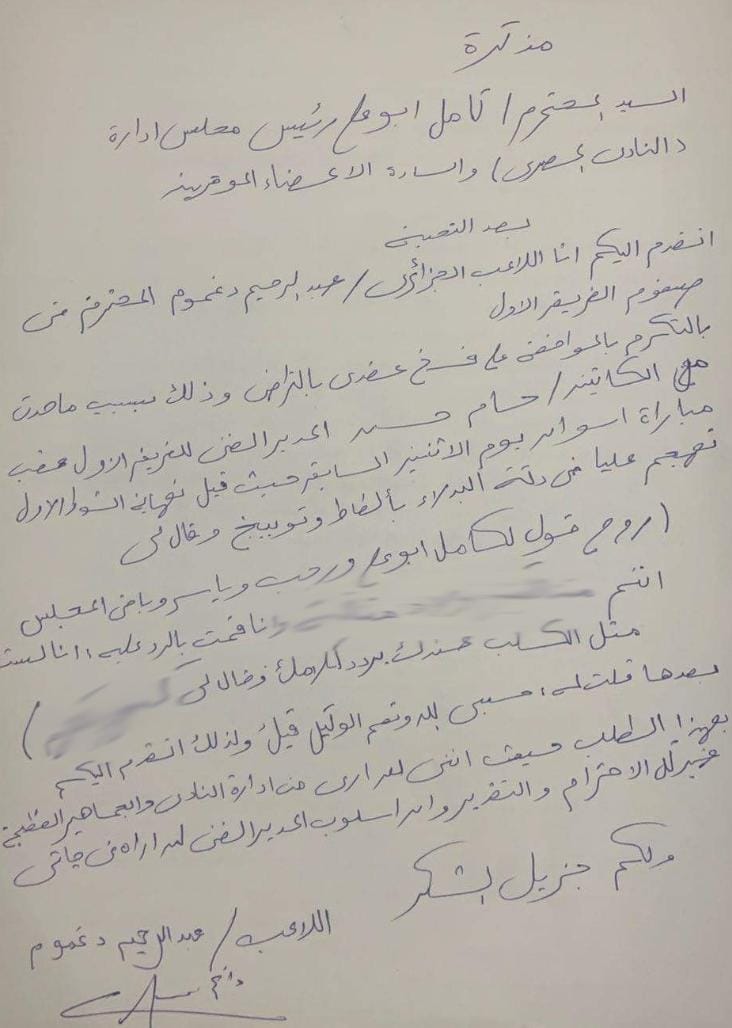 مذكرة
السيد المحترم / كامل ابو علي رئيس مجلس ادارة
(النادى المصرى) والسادة الاعضاء الموقرين
بعد التحية
اتقدم اليكم انا اللاعب الجزائرى / عبد الرحيم دغموم المحترف فى
صفوف الفريق الاول
بالتكرم بالموافقة على فسخ عقدى بالتراضى وذلك بسبب ماحدث
من الكابتن / حسام حسن المدير الفنى للفريق الاول عقب
مباراة اسوان يوم الاثنين السابق حيث قبل نهاية الشوط الاول
تهجم عليا فى دكة البدلاء بألفاظ وتوبيخ وقال لى
(روح قول لكامل ابو على ورجب وياسر وباقى المجلس
انتم وانا قمت بالرد عليه؛ انا لست
مثل الكلب عندك يردد كلامك وقال لى )
بعدها قلت له؛ حسبى الله ونعم الوكيل فيك ولذلك اتقدم اليكم
بهذا الطلب حيث اننى لم ارى من ادارة النادى والجماهير العظيمة
غير كل الاحترام والتقدير وان اسلوب المدير الفنى لم اراه فى حياتى
ولكم جزيل الشكر
اللاعب / عبد الرحيم دغموم